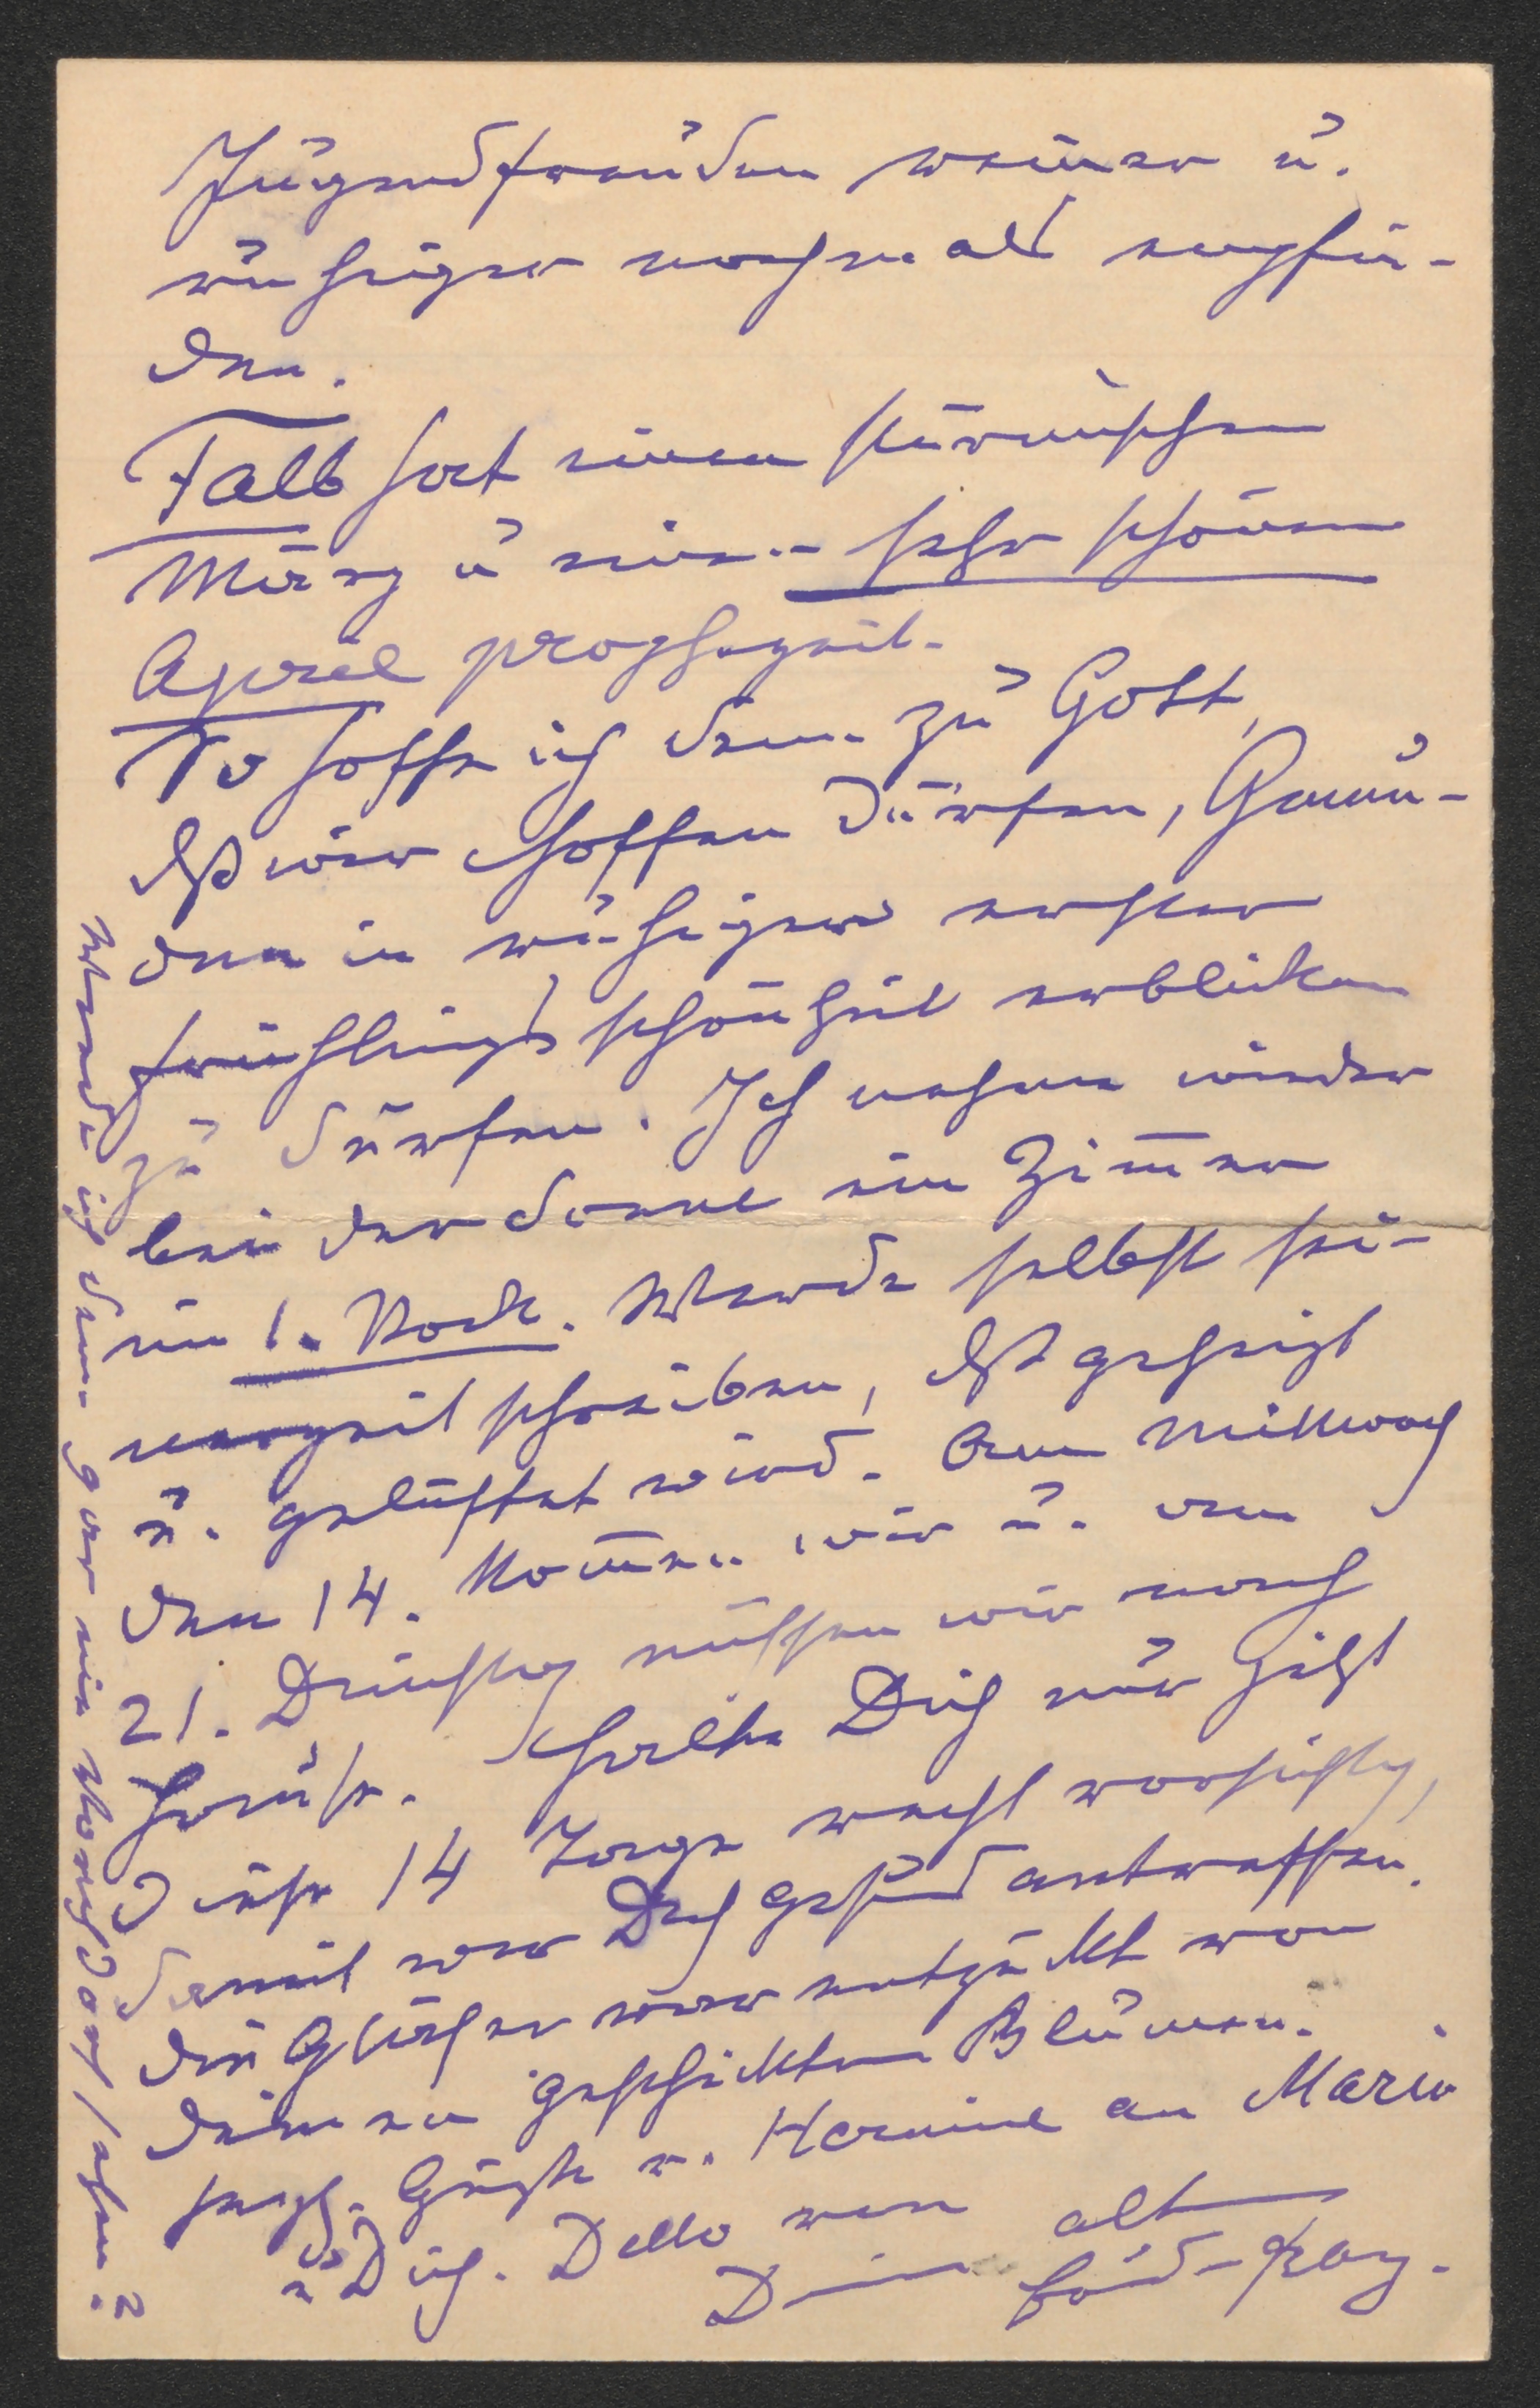 Jugendfreuden reiner u.
ruhiger nochmals empfin-
den.
Falb hat einen stürmischen
März u einen sehr schönen
April prophezeit.
So hoffe ich denn zu Gott,
dß wir hoffen dürfen, Gmun-
den in ruhiger erster
Frühlingsschönheit erblicken
zu dürfen. Ich nehme wieder
bei der Sonne ein Zimmer
im 1. Stock. Werde selbst sei-
nerzeit schreiben, dß geheizt
u. gelüftet wird. Am Mittwoch
den 14. kommen wir u. am
21. Dienstag müssen wir nach
Hause. Halte Dich nur jetzt
diese 14 Tage recht vorsichtig,
damit wir Dich gesund antreffen.
die war entzückt von
deinen geschickten Blumen.
herzl. Grüße v. Hermine an Marie
u Dich. Detto von
Dein alter
Werde ich denn gar nie Ihnen?